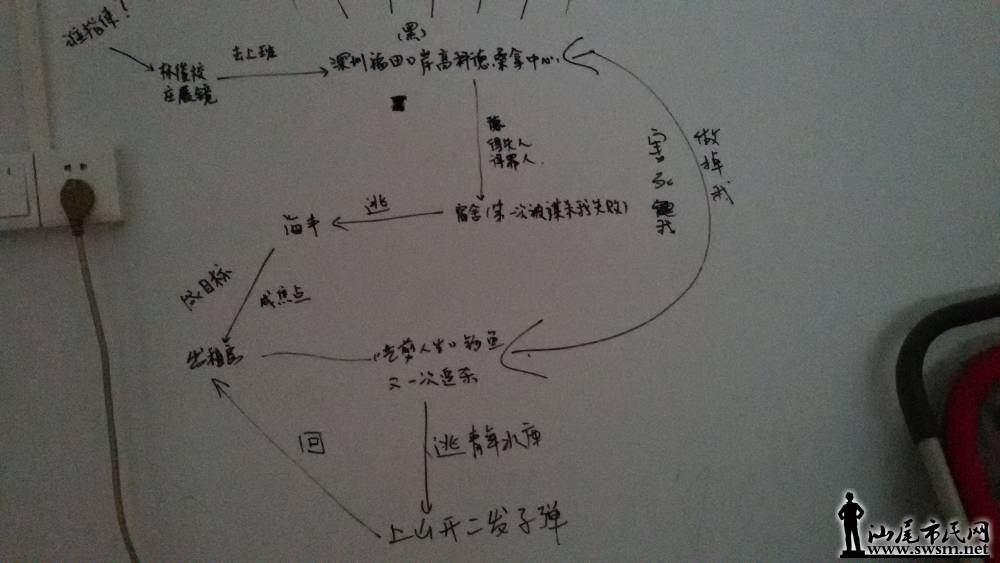 谁指使！
(黑)
去上班
深圳福田口岸高科德.桑拿中心.
在展镜
做掉我
得失人
得罪人.
害死
我
逃
海丰
宿舍(第一次被谋杀我失败)
成焦点
出租房
钓鱼
又一次追杀
回
逃青年水库
上山开二发子弹
汕尾市民网
www.swsm.net